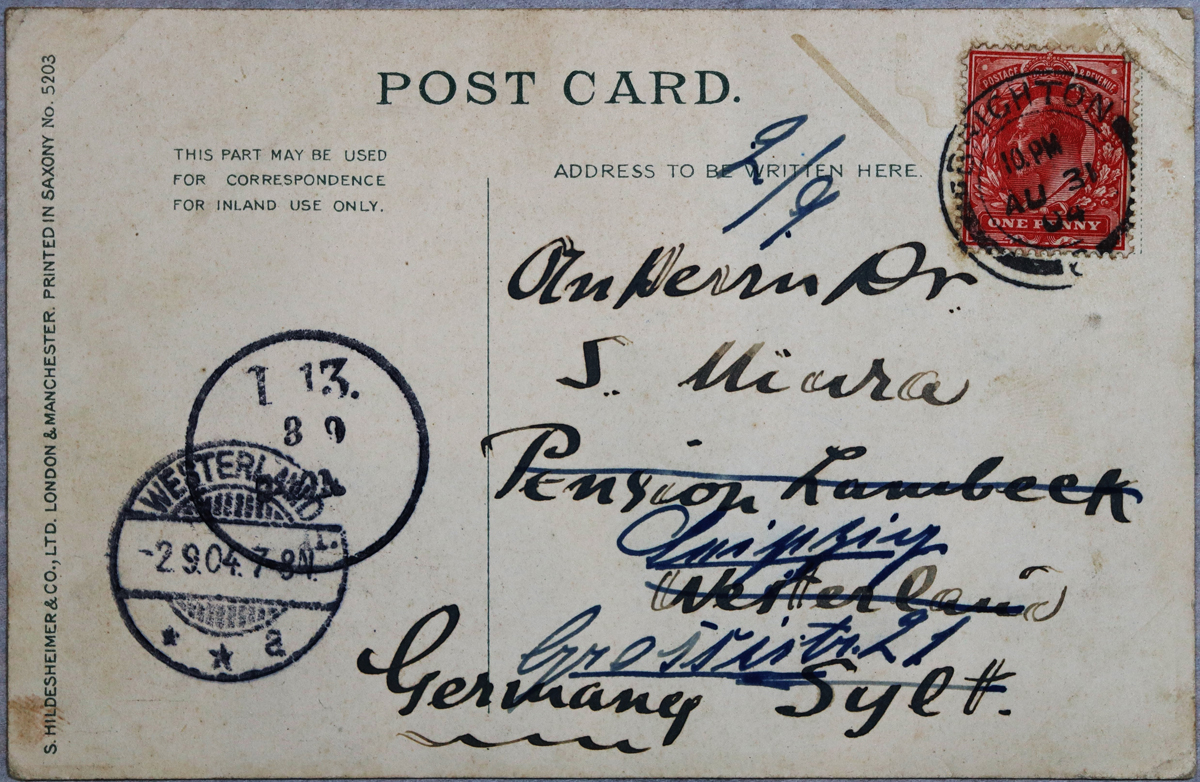 POST CARD.
THIS PART MAY BE USED
FOR CORRESPONDENCE
FOR INLAND USE ONLY.
ADDRESS TO BE WRITTEN HERE.
S. HILDESHEIMER & CO., LTD. LONDON & MANCHESTER. PRINTED IN SAXONY No. 5203
POSTAGE & REVENUE
ONE PENNY
BRIGHTON
10. PM
AU 31
04
2/9
An Herrn Dr
S. Miura
Pension Lambeck
Leipzig
Westerland
Grassistr. 21
Germany Sylt.
1 13.
8 9
WESTERLAND
-2.9.04. 7-8N.
* * a